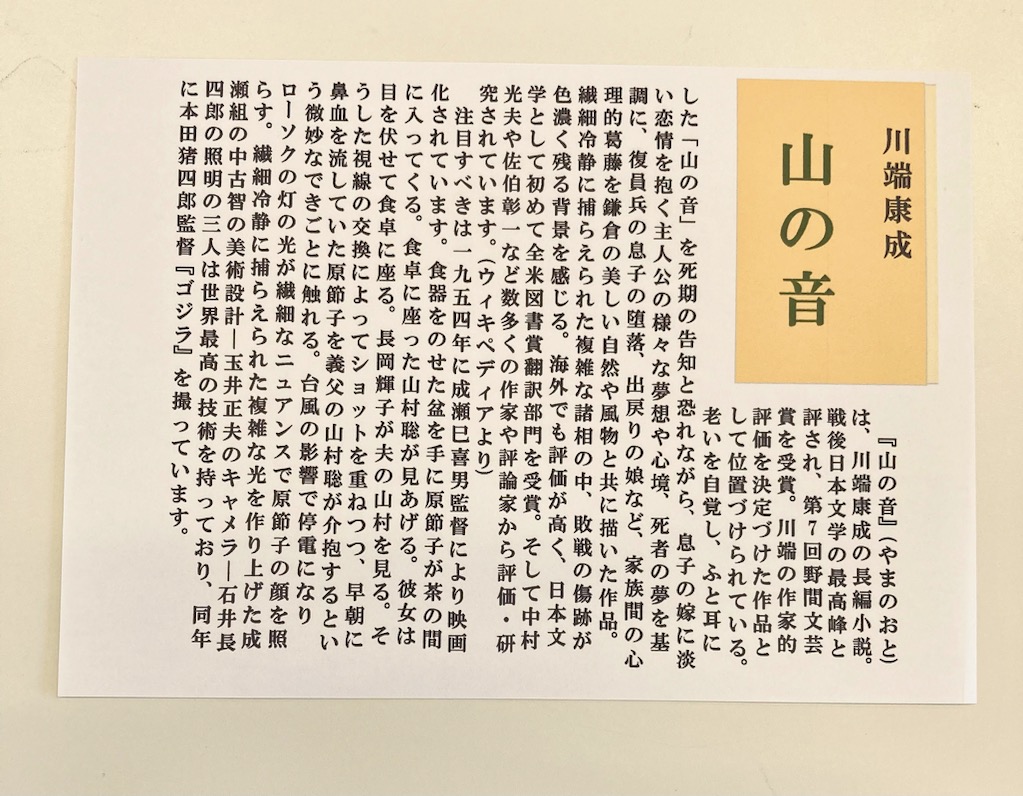 川端康成
山の音
『山の音』(やまのおと)
は、川端康成の長編小説。
戦後日本文学の最高峰と
評され、第7回野間文芸
賞を受賞。川端の作家的
評価を決定づけた作品と
して位置づけられている。
老いを自覚し、ふと耳に
した「山の音」を死期の告知と恐れながら、息子の嫁に淡
い恋情を抱く主人公の様々な夢想や心境、死者の夢を基
調に、復員兵の息子の堕落、出戻りの娘など、家族間の心
理的葛藤を鎌倉の美しい自然や風物と共に描いた作品。
繊細冷静に捕らえられた複雑な諸相の中、敗戦の傷跡が
色濃く残る背景を感じる。海外でも評価が高く、日本文
学として初めて全米図書賞翻訳部門を受賞。そして中村
光夫や佐伯彰一など数多くの作家や評論家から評価・研
究されています。(ウィキペディアより)
注目すべきは一九五四年に成瀬巳喜男監督により映画
化されています。食器をのせた盆を手に原節子が茶の間
に入ってくる。食卓に座った山村聡が見あげる。彼女は
目を伏せて食卓に座る。長岡輝子が夫の山村を見る。そ
うした視線の交換によってショットを重ねつつ、早朝に
鼻血を流していた原節子を義父の山村聡が介抱するとい
う微妙なできごとに触れる。台風の影響で停電になり
ローソクの灯の光が繊細なニュアンスで原節子の顔を照
らす。繊細冷静に捕らえられた複雑な光を作り上げた成
瀬組の中古智の美術設計―玉井正夫のキャメラ―石井長
四郎の照明の三人は世界最高の技術を持っており、同年
に本田猪四郎監督『ゴジラ』を撮っています。